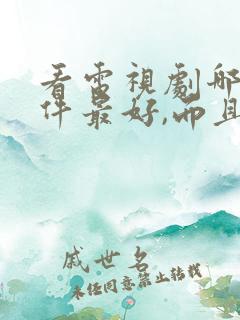 看電視劇哪
件最好,而且
戚世名
未经同意禁止转载